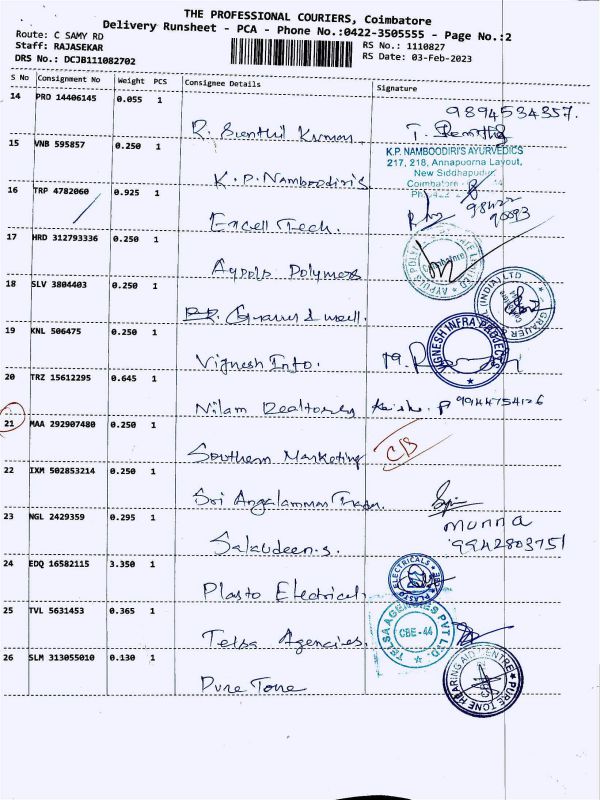 THE PROFESSIONAL COURIERS, Coimbatore
Delivery Runsheet - PCA - Phone No.:0422-3505555 - Page No.:2
Route: C SAMY RD
Staff: RAJASEKAR
DRS No.: DCJB111082702
RS No.: 1110827
RS Date: 03-Feb-2023
S No Consignment No Weight PCS Consignee Details Signature
14 PRO 14406145 0.055 1
9894534357.
R. Senthil Kumar
15 VNB 595857 0.250 1
K.P. NAMBOODIRI'S AYURVEDICS
217, 218, Annapoorna Layout,
New Siddhapudur
Coimbatore
K.P. Namboodiri's
16 TRP 4782060 0.925 1
Excell Tech.
17 HRD 312793336 0.250 1
Aypols Polymers
18 SLV 3804403 0.250 1
19 KNL 506475 0.250 1
VIGNESH INFRA PROJECTS
Vignesh Info.
20 TRZ 15612295 0.645 1
Nilam Realtors
21 MAA 292907480 0.250 1
Southern Marketing
C/B
22 IXM 502853214 0.250 1
Sri Angalamman
23 NGL 2429359 0.295 1
munna
9942803751
Salaudeen.s.
24 EDQ 16582115 3.350 1
PLASTO ELECTRICALS
Plasto Electricals
25 TVL 5631453 0.365 1
TELSA AGENCIES PVT LTD
CBE-44
Telsa Agencies.
26 SLM 313055010 0.130 1
PURE TONE HEARING AID CENTRE
Pure Tone